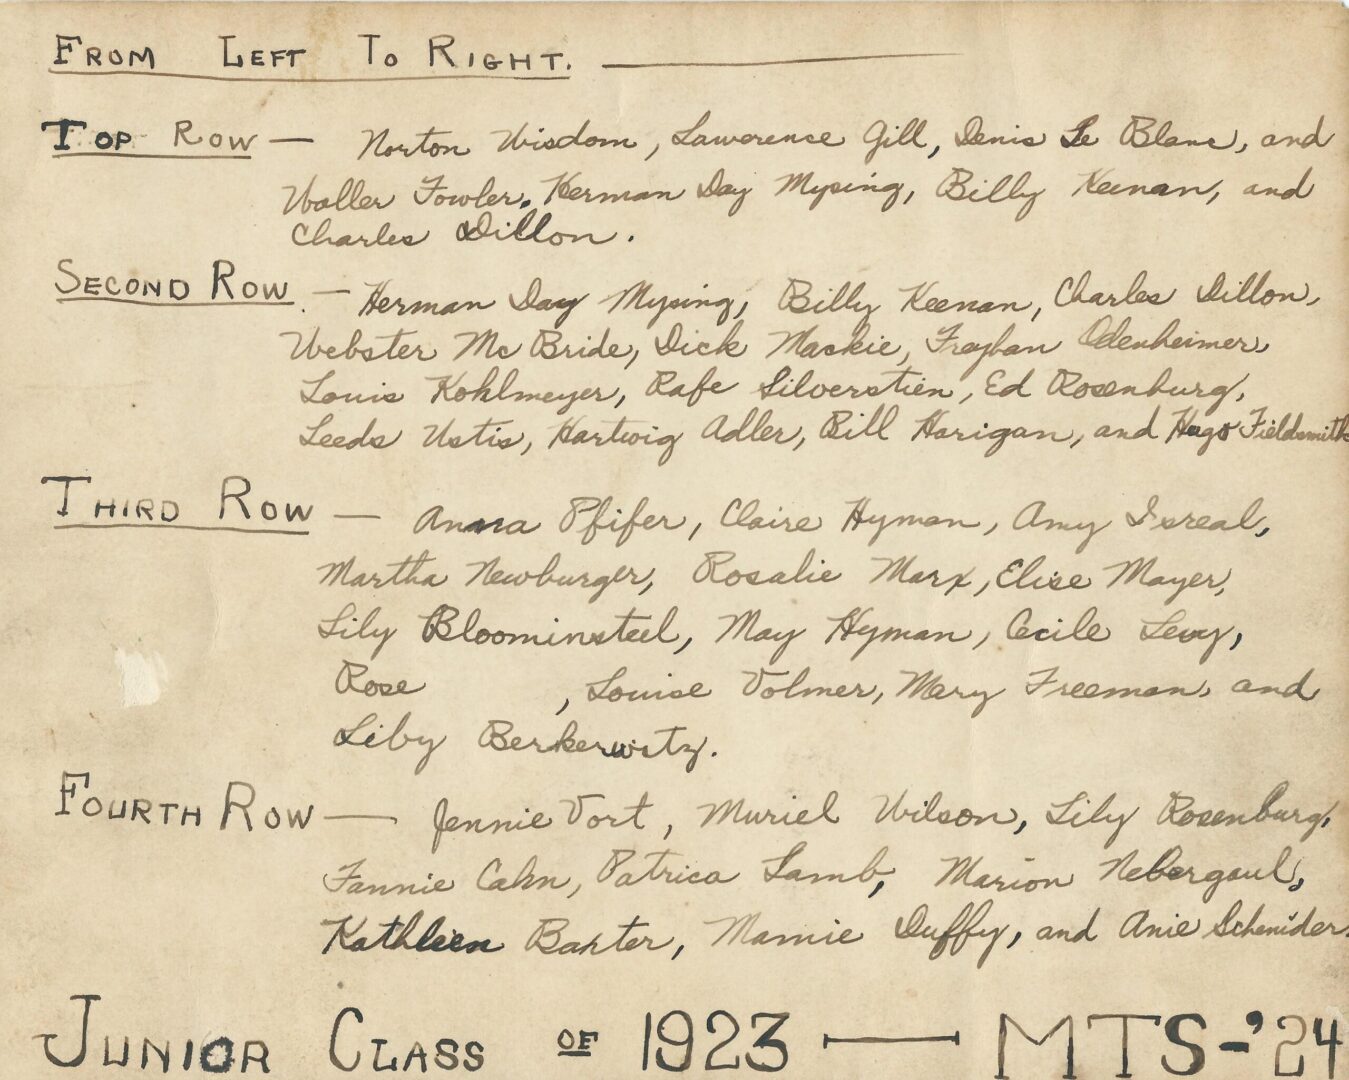 FROM LEFT TO RIGHT.
TOP ROW — Norton Wisdom, Lawerence Gill, Denis Le Blanc, and
Waller Fowler. Herman Day Mysing, Billy Keenan, and
Charles Dillon.
SECOND ROW. — Herman Day Mysing, Billy Keenan, Charles Dillon,
Webster McBride, Dick Mackie, Freyhan Odenheimer,
Louis Kohlmeyer, Rafe Silverstien, Ed Rosenburg,
Leeds Ustis, Hartwig Adler, Bill Harigan, and Hugo Fieldsmith
THIRD ROW — Anna Pfifer, Claire Hyman, Amy Isreal,
Martha Newburger, Rosalie Marx, Elise Mayer,
Lily Bloominsteel, May Hyman, Cecile Levy,
Rose , Louise Volmer, Mary Freeman, and
Liby Berkerwitz.
FOURTH ROW — Jennie Vort, Muriel Wilson, Lily Rosenburg,
Fannie Cahn, Patrica Lamb, Marion Nebergaul,
Kathleen Baxter, Mamie Duffy, and Anie Schnider.
JUNIOR CLASS OF 1923 — MTS-'24